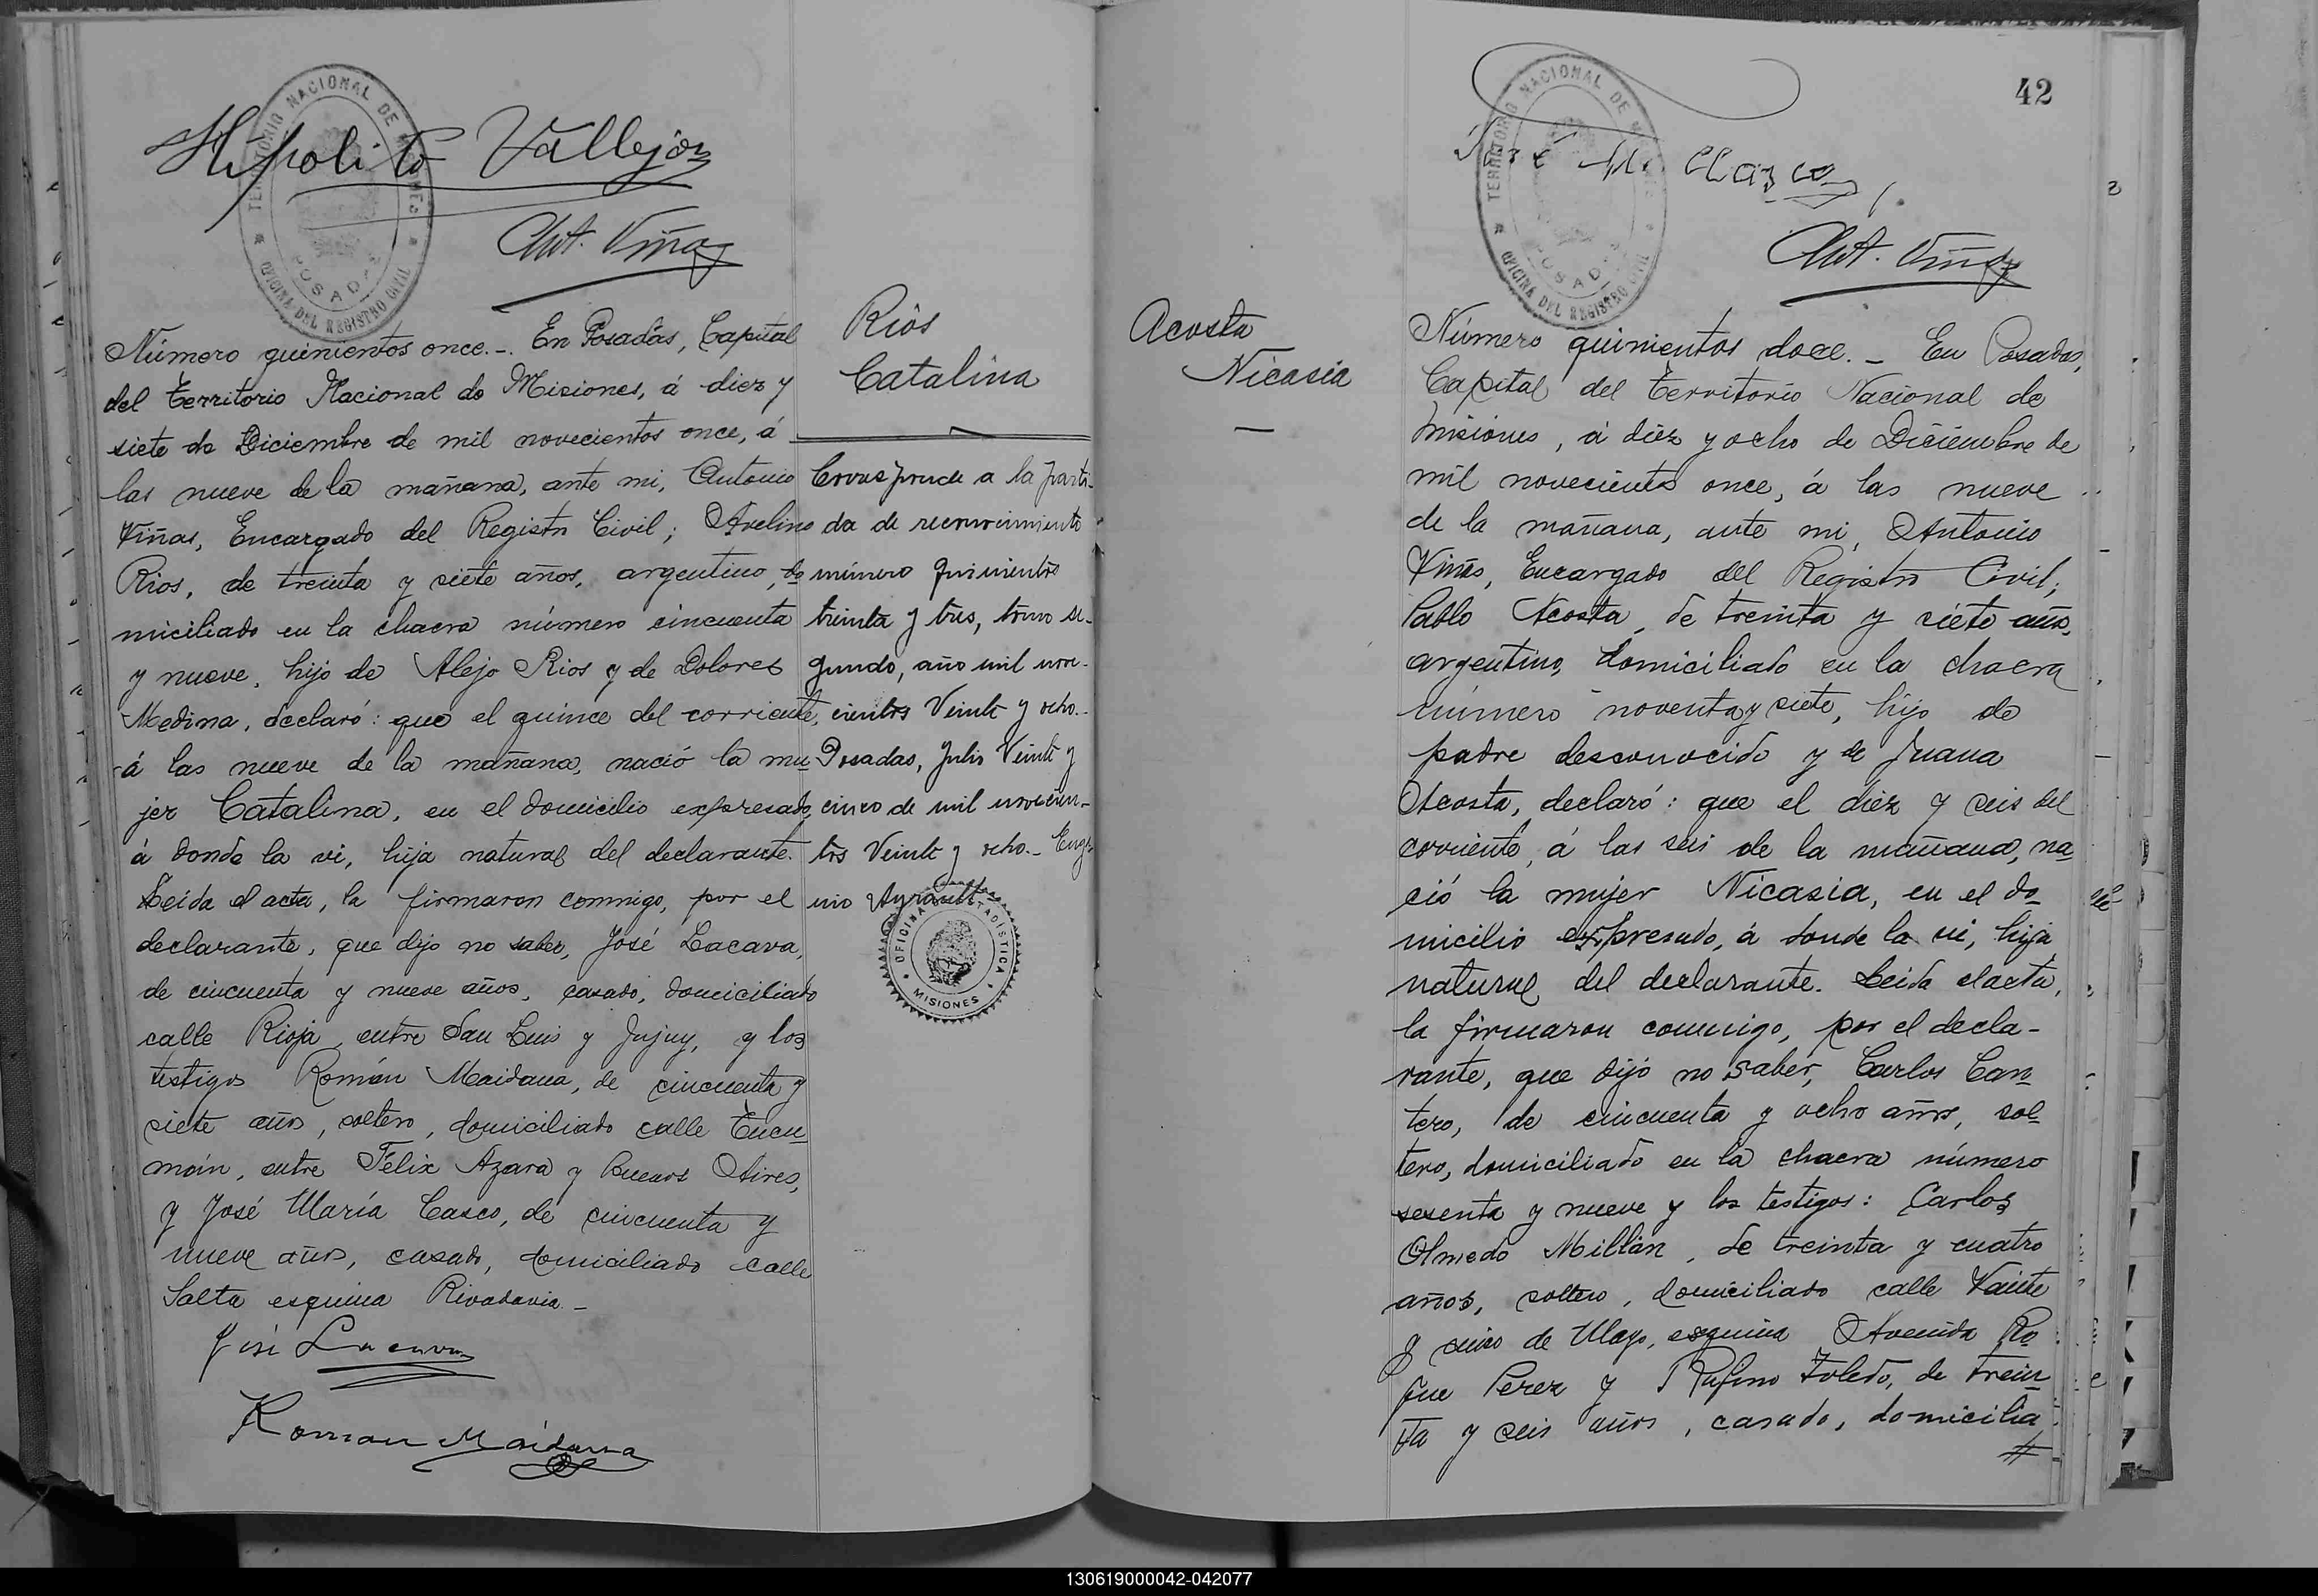 TERRITORIO NACIONAL DE MISIONES
POSADAS
OFICINA DEL REGISTRO CIVIL
Hipolito Vallejos
Ant. Viñas
Número quinientos once.-. En Posadas, Capital
del Territorio Nacional de Misiones, á diez y
siete de Diciembre de mil novecientos once, á
las nueve de la mañana, ante mi, Antonio
Viñas, Encargado del Registro Civil; Avelino
Rios, de treinta y siete años, argentino, do
miciliado en la chacra número cincuenta
y nueve, hijo de Alejo Rios y de Dolores
Medina, declaró: que el quince del corriente,
á las nueve de la mañana, nació la mu
jer Catalina, en el domicilio expresado,
á donde la vi, hija natural del declarante.
Leida el acta, la firmaron conmigo, por el
declarante, que dijo no saber, José Lacava,
de cincuenta y nueve años, casado, domiciliado
calle Rioja, entre San Luis y Jujuy, y los
testigos Román Maidana, de cincuenta y
siete años, soltero, domiciliado calle Tucu
mán, entre Félix Azara y Buenos Aires,
y José María Casco, de cincuenta y
nueve años, casado, domiciliado calle
Salta esquina Rivadavia.-
José Lacava
Roman Maidana
Rios
Catalina
Corresponde a la parti-
da de reconocimiento
número quinientos
treinta y tres, tomo se-
gundo, año mil nove-
cientos Veinte y ocho.-
Posadas, Julio Veinte y
cinco de mil novecien-
tos Veinte y ocho.- Euge
nio Ayrault
OFICINA ESTADISTICA
MISIONES
42
TERRITORIO NACIONAL DE MISIONES
POSADAS
OFICINA DEL REGISTRO CIVIL
José Ma Casco
Ant. Viñas
Acosta
Nicasia
Número quinientos doce.- En Posadas,
Capital del Territorio Nacional de
Misiones, á diez y ocho de Diciembre de
mil novecientos once, á las nueve
de la mañana, ante mi, Antonio
Viñas, Encargado del Registro Civil;
Pablo Acosta, de treinta y siete años,
argentino, domiciliado en la chacra
número noventa y siete, hijo de
padre desconocido y de Juana
Acosta, declaró: que el diez y seis del
corriente, á las seis de la mañana, na
ció la mujer Nicasia, en el do-
micilio expresado, á donde la vi, hija
natural del declarante. Leida el acta,
la firmaron conmigo, por el decla-
rante, que dijo no saber, Carlos Can
tero, de cincuenta y ocho años, sol
tero, domiciliado en la chacra número
sesenta y nueve y los testigos: Carlos
Olmedo Millán, de treinta y cuatro
años, soltero, domiciliado calle Vainte
y cinco de Mayo, esquina Avenida Ro
que Perez y Rufino Toledo, de trein
ta y seis años, casado, domicilia
#
130619000042-042077